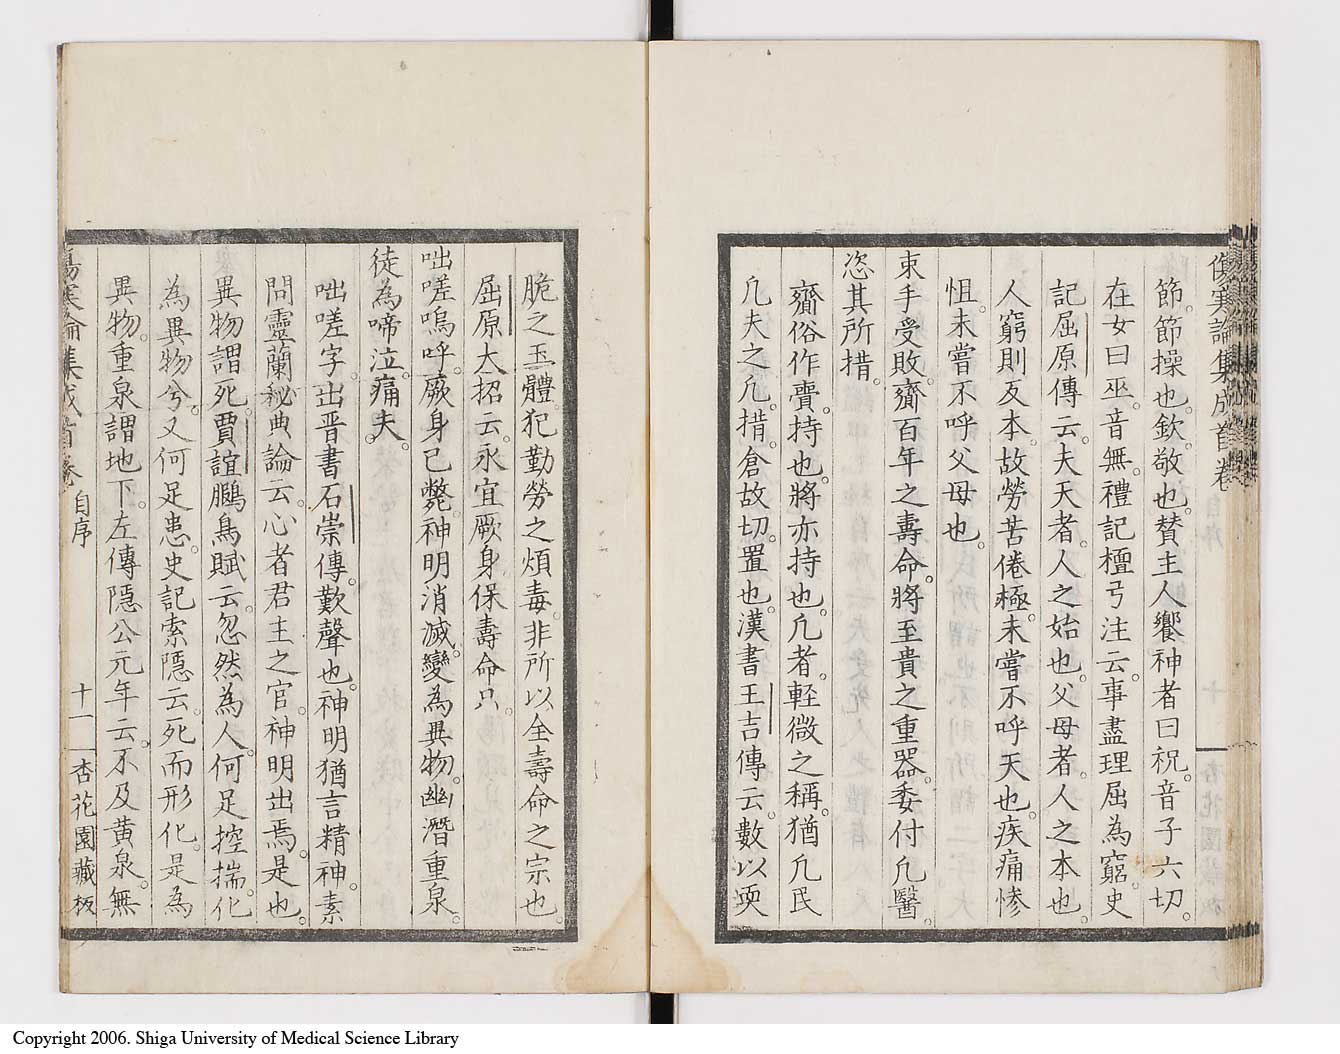 傷寒論集成首卷
節節操也欽敬也贊主人饗神者曰祝音子六切
在女曰巫音無禮記檀弓注云事盡理屈為窮史
記屈原傳云夫天者人之始也父母者人之本也
人窮則反本故勞苦倦極未嘗不呼天也疾痛慘
怛未嘗不呼父母也
束手受敗齎百年之壽命將至貴之重器委付凢醫
恣其所措
齎俗作賷持也將亦持也凢者輕微之稱猶凢民
凢夫之凢措倉故切置也漢書王吉傳云數以耎
脆之玉體犯勤勞之煩毒非所以全壽命之宗也
屈原大招云永宜厥身保壽命只
咄嗟嗚呼厥身已斃神明消滅變為異物幽潛重泉
徒為啼泣痛夫
咄嗟字出晋書石崇傳歎聲也神明猶言精神素
問靈蘭秘典論云心者君主之官神明出焉是也
異物謂死賈誼鵩鳥賦云忽然為人何足控揣化
為異物兮又何足患史記索隱云死而形化是為
異物重泉謂地下左傳隱公元年云不及黄泉無
傷寒論集成首卷 自序 十一 杏花園藏板
Copyright 2006. Shiga University of Medical Science Library